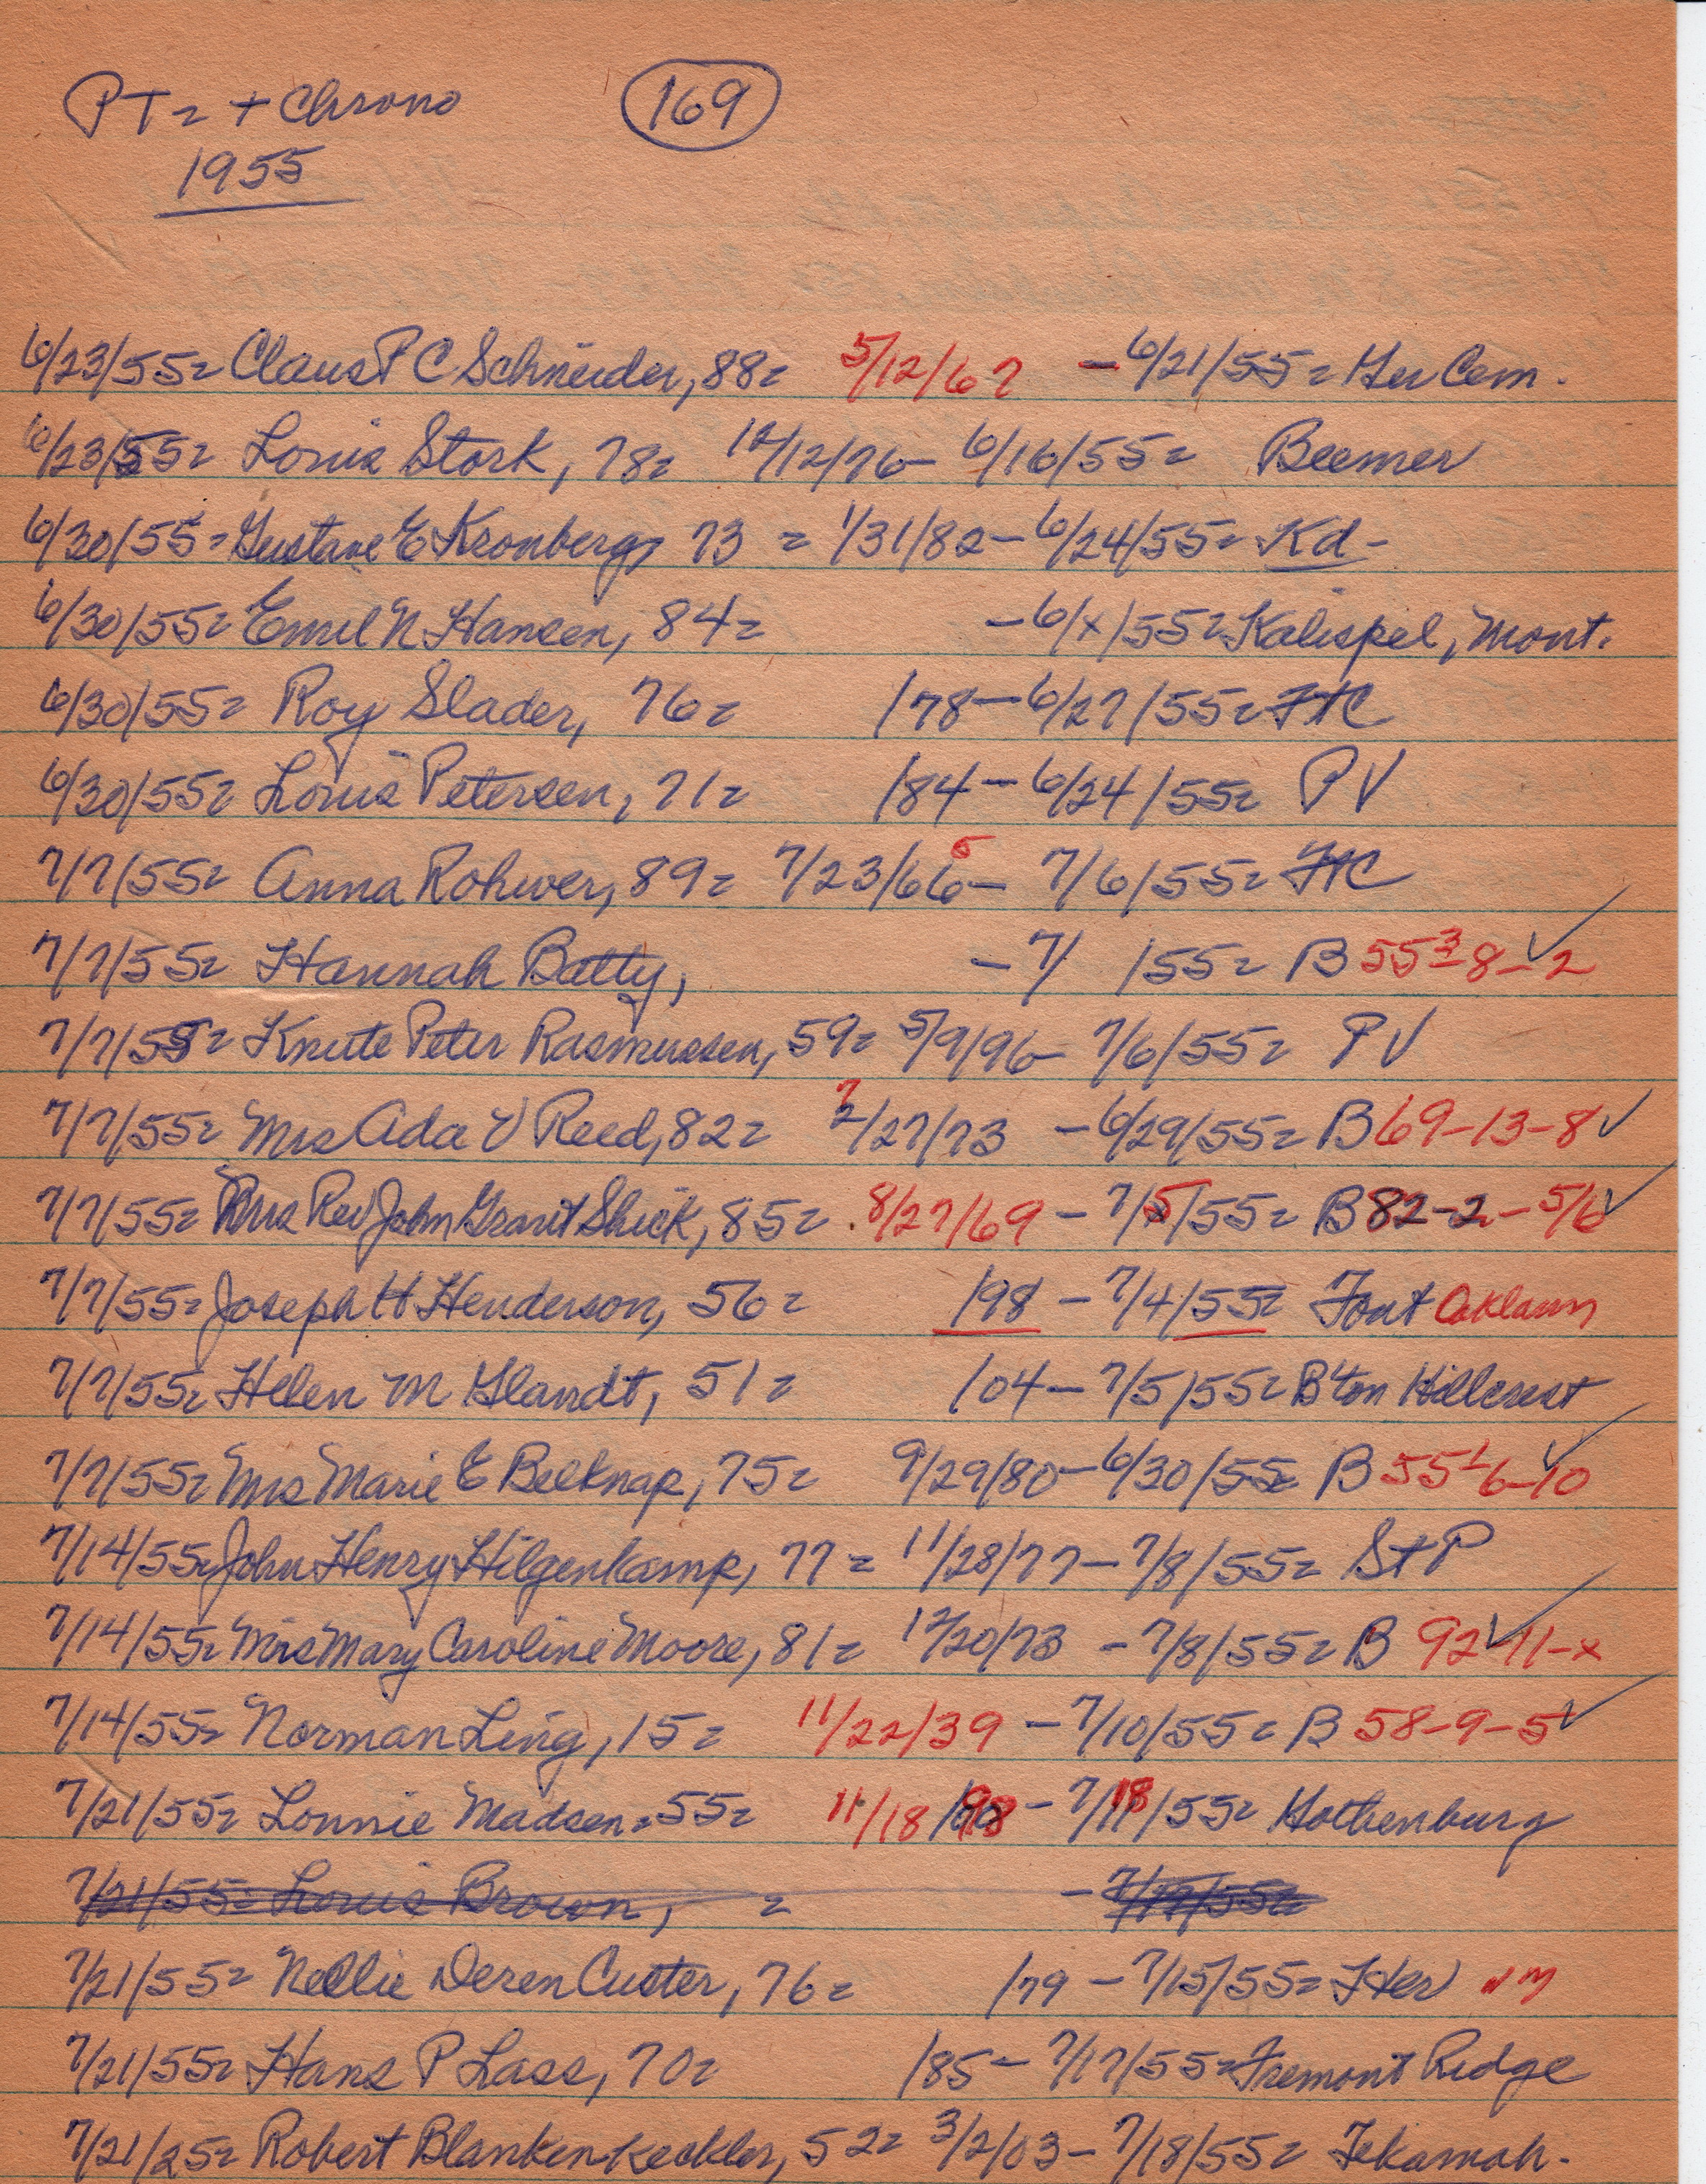 PT = + Chrono 169
1955
6/23/55= Claus P C Schneider, 88= 5/12/67 - 6/21/55= Ger Cem.
6/23/55= Louis Stork, 78= 12/12/76- 6/16/55= Beemer
6/30/55= Gustave E Kronberg, 73 = 1/31/82- 6/24/55= Kd-
6/30/55= Emil N Hansen, 84= -6/x/55= Kalispel, Mont.
6/30/55= Roy Slader, 76= /78- 6/27/55= FtC
6/30/55= Louis Petersen, 71= /84- 6/24/55= PV
7/7/55= Anna Rohwer, 89= 7/23/66 5 - 7/6/55= FtC
7/7/55= Hannah Batty, - 7/ /55= B 55³-8-2 ✓
7/7/55= Knute Peter Rasmussen, 59= 5/9/96- 7/6/55= PV
7/7/55= Mrs Ada V Reed, 82= 7 2/27/73 - 6/29/55= B 69-13-8 ✓
7/7/55= Mrs Rev John Grant Shick, 85= 8/27/69 - 7/5/55= B 82-2-5/6 ✓
7/7/55= Joseph H Henderson, 56= /98 - 7/4/55= Font Oaklawn
7/7/55= Helen M Glandt, 51= /04- 7/5/55= B'ton Hillcrest
7/7/55= Mrs Marie E Belknap, 75= 9/29/80- 6/30/55= B 55¹-6-10 ✓
7/14/55= John Henry Hilgenkamp, 77= 11/28/77- 7/8/55= St P
7/14/55= Mrs Mary Caroline Moore, 81= 12/20/73 - 7/8/55= B 92-11-x ✓
7/14/55= Norman Ling, 15= 11/22/39 - 7/10/55= B 58-9-5 ✓
7/21/55= Lonnie Madsen= 55= 11/18/98 - 7/18/55= Gothenburg
7/21/55= Louis Brown, = - 7/19/55=
7/21/55= Nellie Deren Custer, 76= /79 - 7/15/55= Her
7/21/55= Hans P Lass, 70= /85- 7/17/55= Fremont Ridge
7/21/25= Robert Blankenkeckler, 52= 3/2/03- 7/18/55= Tekamah.